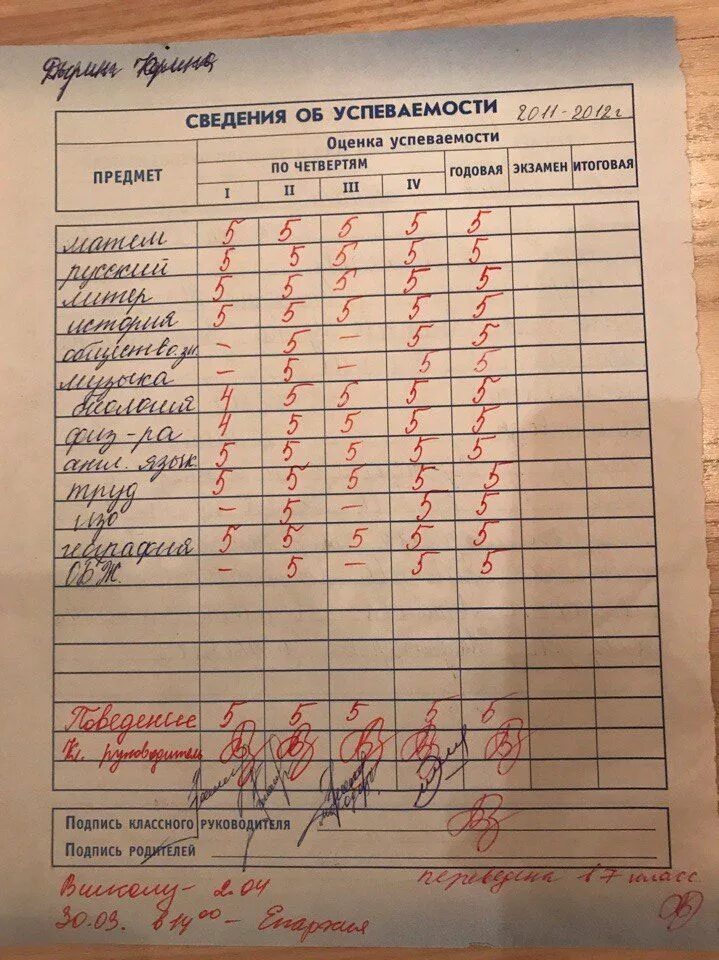 СВЕДЕНИЯ ОБ УСПЕВАЕМОСТИ 2011-2012г
ПРЕДМЕТ
Оценка успеваемости
ПО ЧЕТВЕРТЯМ
I II III IV ГОДОВАЯ ЭКЗАМЕН ИТОГОВАЯ
матем 5 5 5 5 5
русский 5 5 5 5 5
литер 5 5 5 5 5
история 5 5 5 5 5
общество.зн. - 5 - 5 5
музыка - 5 - 5 5
биология 4 5 5 5 5
физ-ра 4 5 5 5 5
англ. язык 5 5 5 5 5
труд 5 5 5 5 5
изо - 5 - 5 5
география 5 5 5 5 5
ОБЖ. - 5 - 5 5
Поведение 5 5 5 5 5
Кл. руководитель
Подпись классного руководителя
Подпись родителей
переведена в 7 класс
В школу - 2.04
30.03. в 14⁰⁰ - Епархия